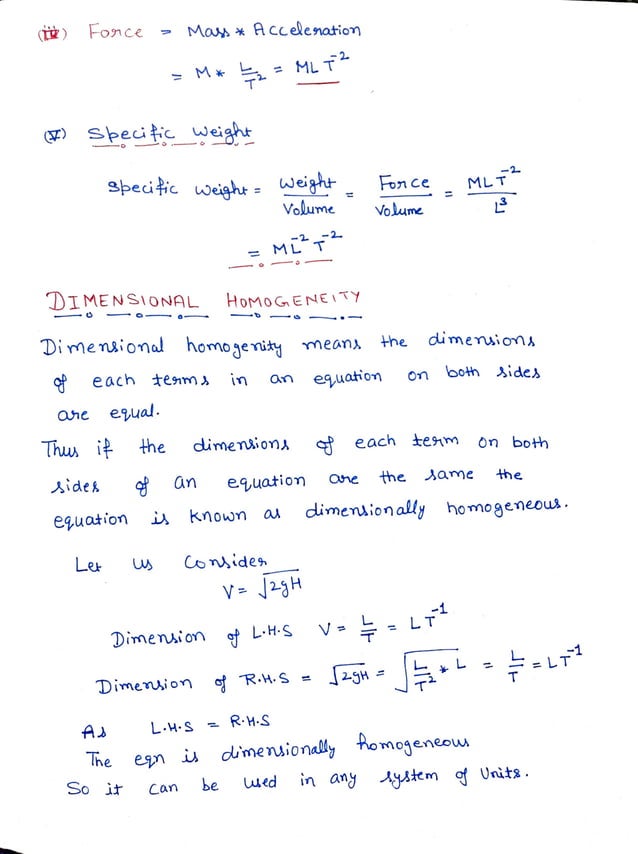 (iv) Force = Mass * Acceleration
= M * L/T² = MLT⁻²
(V) Specific Weight
Specific Weight = Weight/Volume = Force/Volume = MLT⁻²/L³
= ML⁻²T⁻²
DIMENSIONAL HOMOGENEITY
Dimensional homogenity means the dimensions
of each terms in an equation on both sides
are equal.
Thus if the dimensions of each term on both
sides of an equation are the same the
equation is known as dimensionally homogeneous.
Let us Consider
V = √2gH
Dimension of L.H.S V = L/T = LT⁻¹
Dimension of R.H.S = √2gH = √L/T² * L = L/T = LT⁻¹
As L.H.S = R.H.S
The eqn is dimensionally homogeneous
So it can be used in any system of Units.